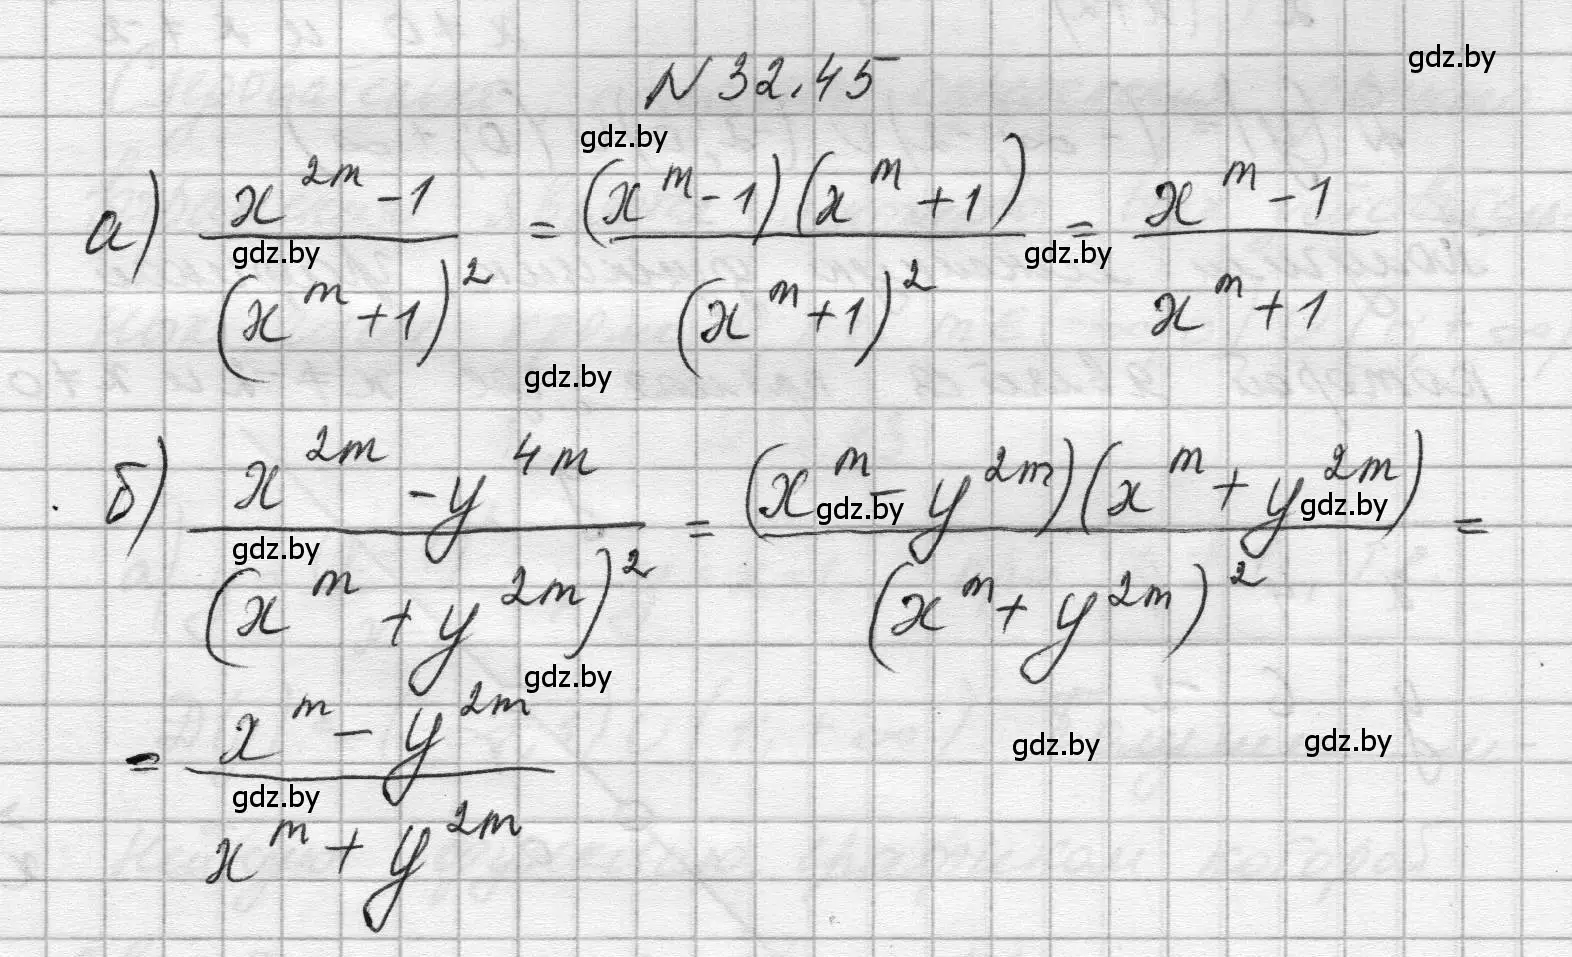 N 32.45
а) (x^{2m} - 1)/(x^m + 1)^2 = ((x^m - 1)(x^m + 1))/(x^m + 1)^2 = (x^m - 1)/(x^m + 1)
б) (x^{2m} - y^{4m})/(x^m + y^{2m})^2 = ((x^m - y^{2m})(x^m + y^{2m}))/(x^m + y^{2m})^2 =
= (x^m - y^{2m})/(x^m + y^{2m})
gdz.by
gdz.by
gdz.by
gdz.by
gdz.by
gdz.by
gdz.by
gdz.by
gdz.by
gdz.by
gdz.by
gdz.by